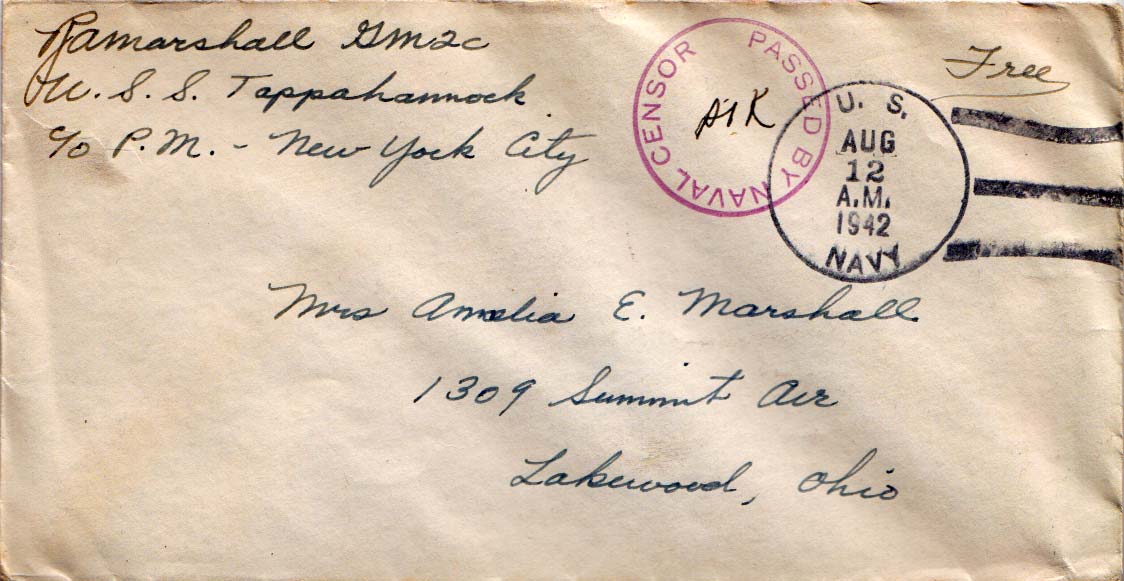 RAMarshall GM2c
U. S. S. Tappahannock
c/o P.M. - New York City
Free
PASSED BY NAVAL CENSOR
U. S.
AUG
12
A.M.
1942
NAVY
Mrs Amelia E. Marshall
1309 Summit Ave
Lakewood, Ohio